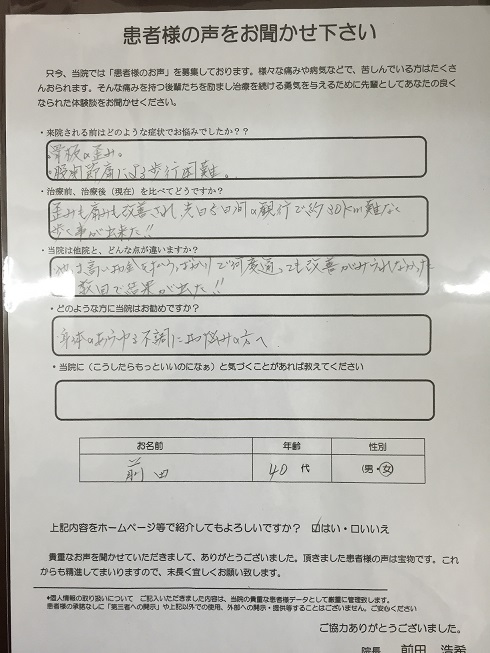 患者様の声をお聞かせ下さい
只今、当院では「患者様のお声」を募集しております。様々な痛みや病気などで、苦しんでいる方はたくさ
んおられます。そんな痛みを持つ後輩たちを励まし治療を続ける勇気を与えるために先輩としてあなたの良く
なられた体験談をお聞かせください。
・来院される前はどのような症状でお悩みでしたか？？
・骨盤の歪み。
・股関節痛による歩行困難。
・治療前、治療後（現在）を比べてどうですか？
歪みも痛みも改善され、先日5日間の旅行で約30km難なく
歩く事が出来た!!
・当院は他院と、どんな点が違いますか？
他は高い お金をとるばかりで何度通っても改善がみられなかった
数回で結果が出た!!
・どのような方に当院はお勧めですか？
身体のあらゆる不調にお悩みの方へ
・当院に（こうしたらもっといいのになぁ）と気づくことがあれば教えてください
お名前 年齢 性別
前田 40 代 (男・女)
上記内容をホームページ等で紹介してもよろしいですか？ ☑はい・□いいえ
貴重なお声を聞かせていただきまして、ありがとうございました。頂きました患者様の声は宝物です。これ
からも精進してまいりますので、末長く宜しくお願い致します。
●個人情報の取り扱いについて ご記入いただきました内容は、当院の貴重な患者様データとして厳重に管理致します。
患者様の承諾なしに「第三者への開示」や上記以外での使用、外部への開示・提供等することはございません。ご安心ください
ご協力ありがとうございました。
院長 前田 浩希